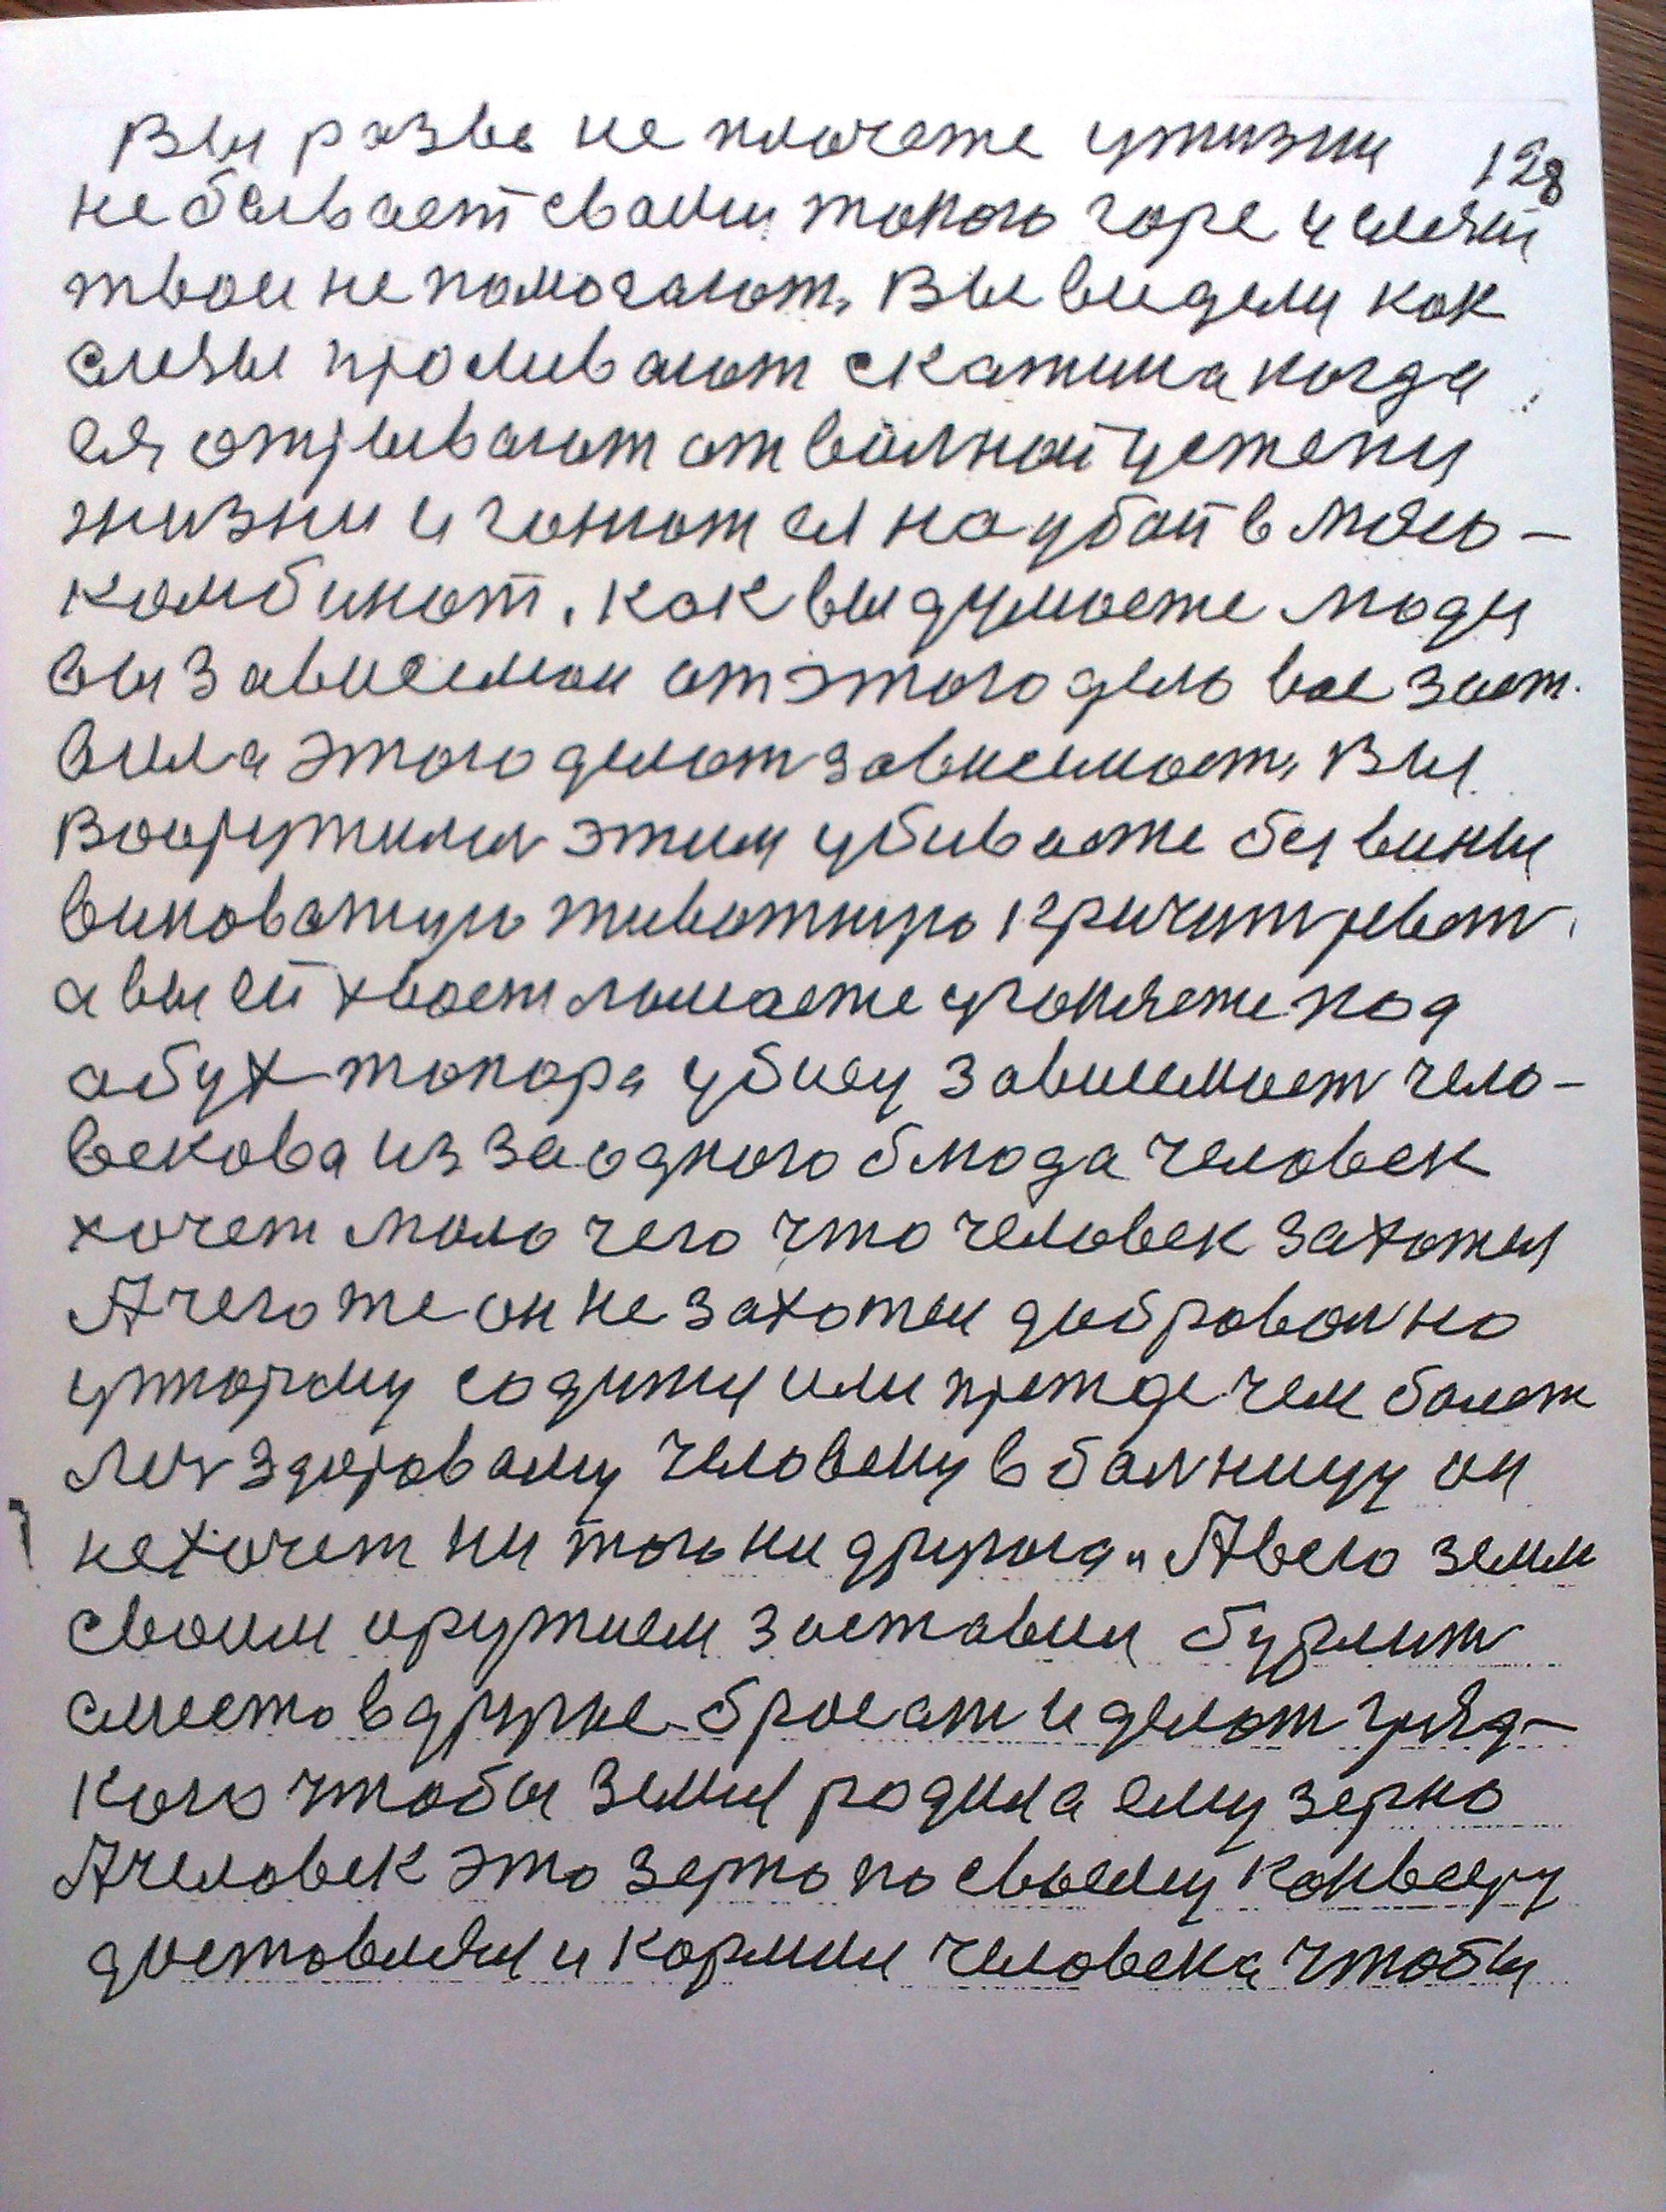 Вы разве не плочете ужизни 128
не бывает свами токого горе и слёзы
твои не помогают, Вы видели как
слезы проливают скатина когда
ея отрывают от вольной у степи
жизни и гонют ея на убой в мясо-
комбинат, как вы думоете люди
вы зависемои от этого дело вас заст.
вила этого делот зависемост, Вы
вооружилис этим убиваете без вины
виноватую животную кричит ревот,
а вы ей хвост ломаете угоняете под
абух топора убису зависемост чело-
векова из за одного блюда человек
хочет мало чего что человек захотел
А чего же он не захотел доброволно
утюрму садится или прежде чем болет
леч здоровому человеку в болницу он
не хочет ни того ни другога. А всего земли
своим оружием заставил бурлит
сместо в другое бросат и делот гряд-
кою чтобы земля родила ему зерно
А человек это зерно по своему конвееру
доставлял и кормил человека чтобы